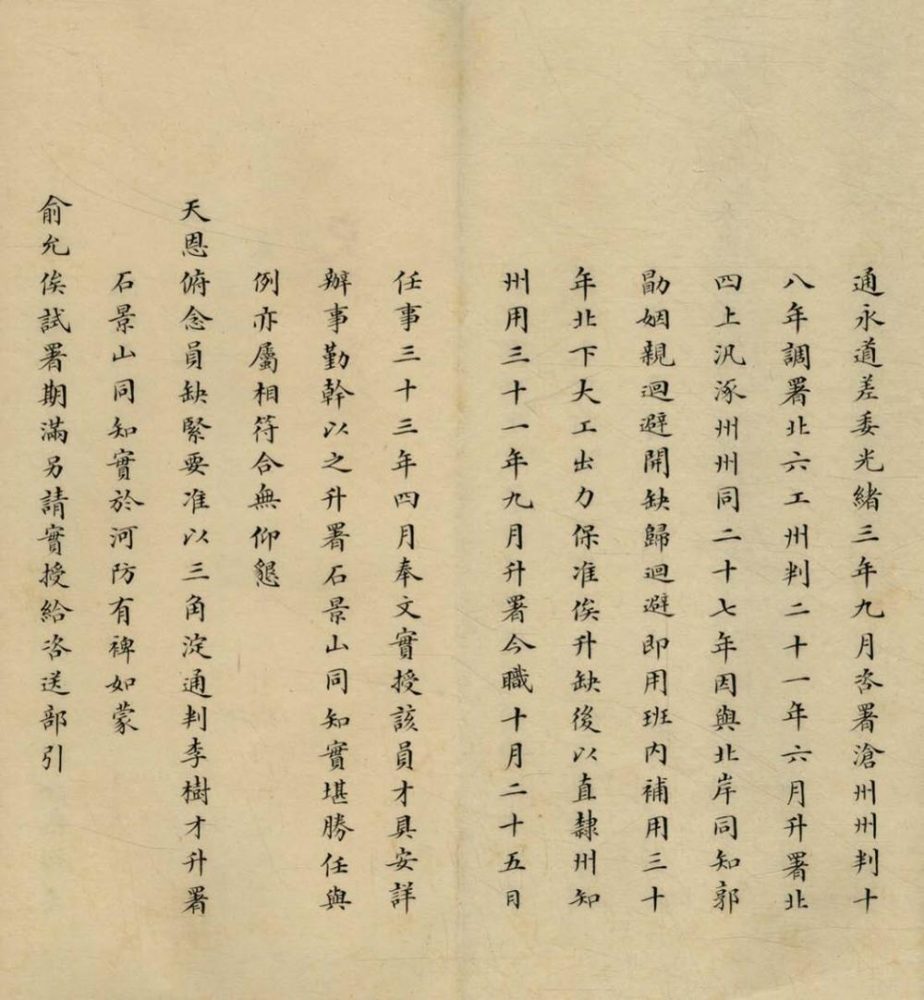 通永道差委光緒三年九月咨署滄州州判十
八年調署北六工州判二十一年六月升署北
四上汛涿州州同二十七年因與北岸同知郭
勛姻親迴避開缺歸迴避即用班內補用三十
年北下大工出力保准俟升缺後以直隸州知
州用三十一年九月升署今職十月二十五日
任事三十三年四月奉文實授該員才具安詳
辦事勤幹以之升署石景山同知實堪勝任與
例亦屬相符合無仰懇
天恩俯念員缺緊要准以三角淀通判李樹才升署
石景山同知實於河防有裨如蒙
俞允俟試署期滿另請實授給咨送部引